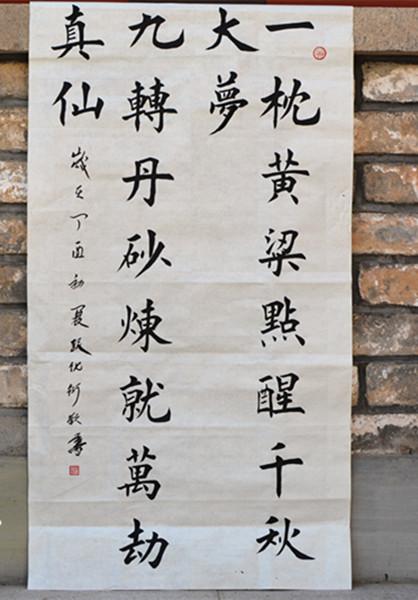 一枕黄粱點醒千秋
大夢
九轉丹砂煉就萬劫
真仙
歲丁酉初夏敬書